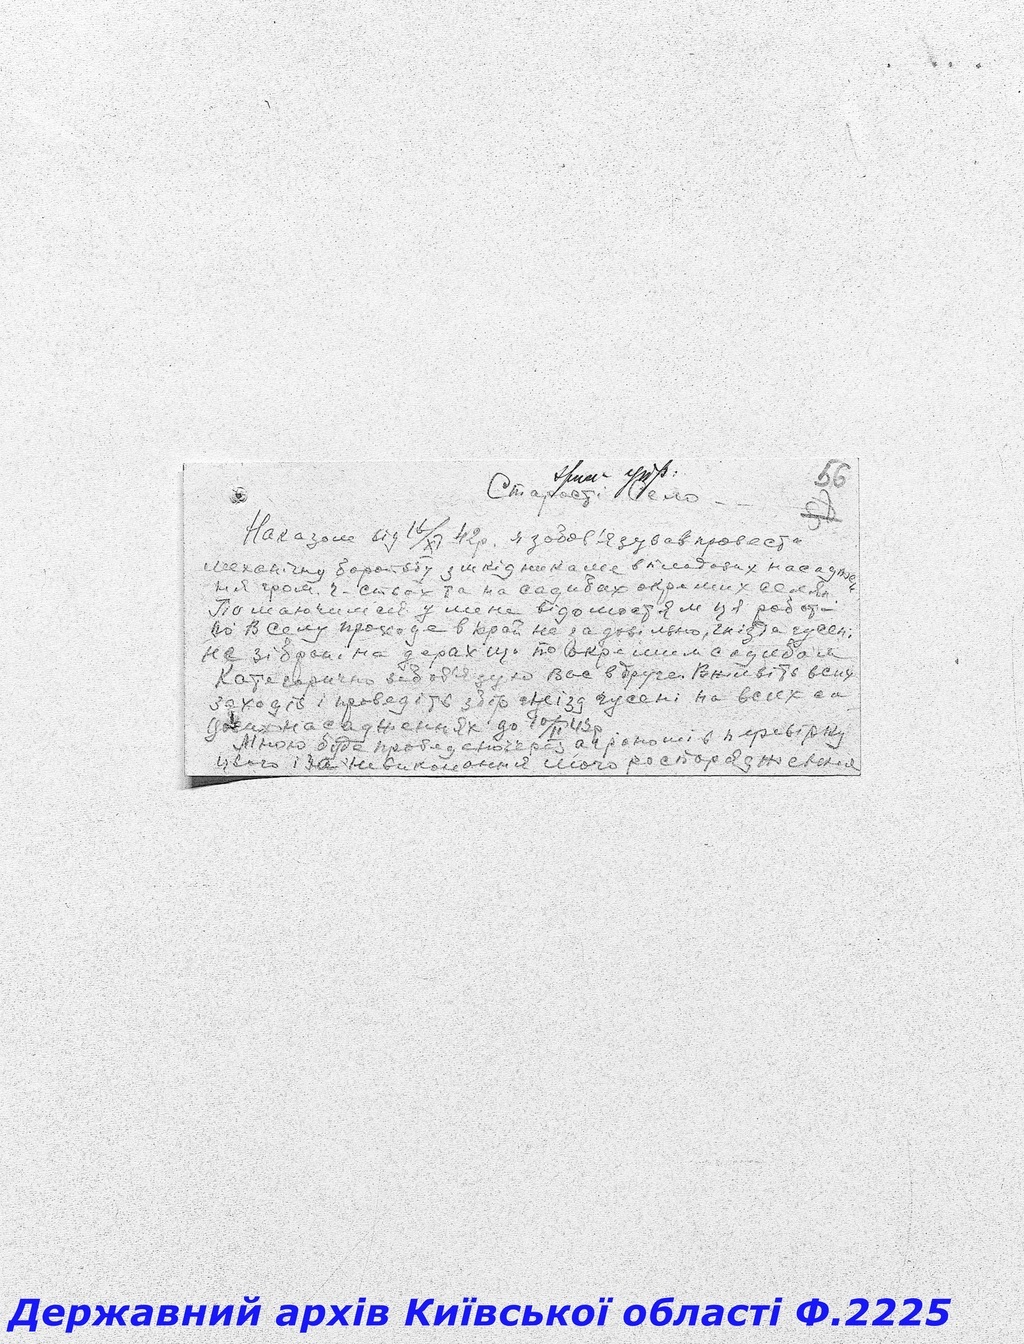 56
Старості село
Наказом від 16/XII 42р. я зобов'язував провести
механічну боротьбу з шкідниками в плодових насаджен-
ня гром. г-ствах та на садибах окремих селян.
По маючимся у мене відомостям ця робота
по В селу проходе в край не задовільно, гнізда гусені
не зібрані на деревах що по окремим садибам
Категорично зобов'язую Вас вдруге. Вживіть всіх
заходів і проведіть збір гнізд гусені на всіх са
дових насадженнях до 10/II 43р
Мною буде проведено через агрономів перевірку
цього і за невиконання мого розпорядження
Державний архів Київської області Ф.2225